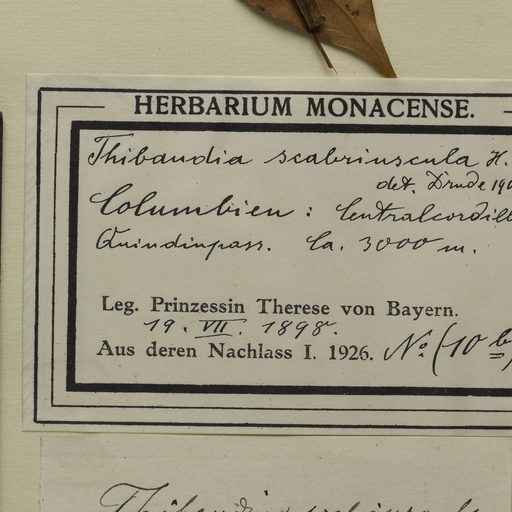 HERBARIUM MONACENSE.
Thibaudia scabriuscula H.
det. Drude 190
Columbien: Centralcordill
Quindiupass. Ca. 3000 m.
Leg. Prinzessin Therese von Bayern.
19. VII. 1898.
Aus deren Nachlass I. 1926. No. (10 b)
Thibaudia scabriuscula